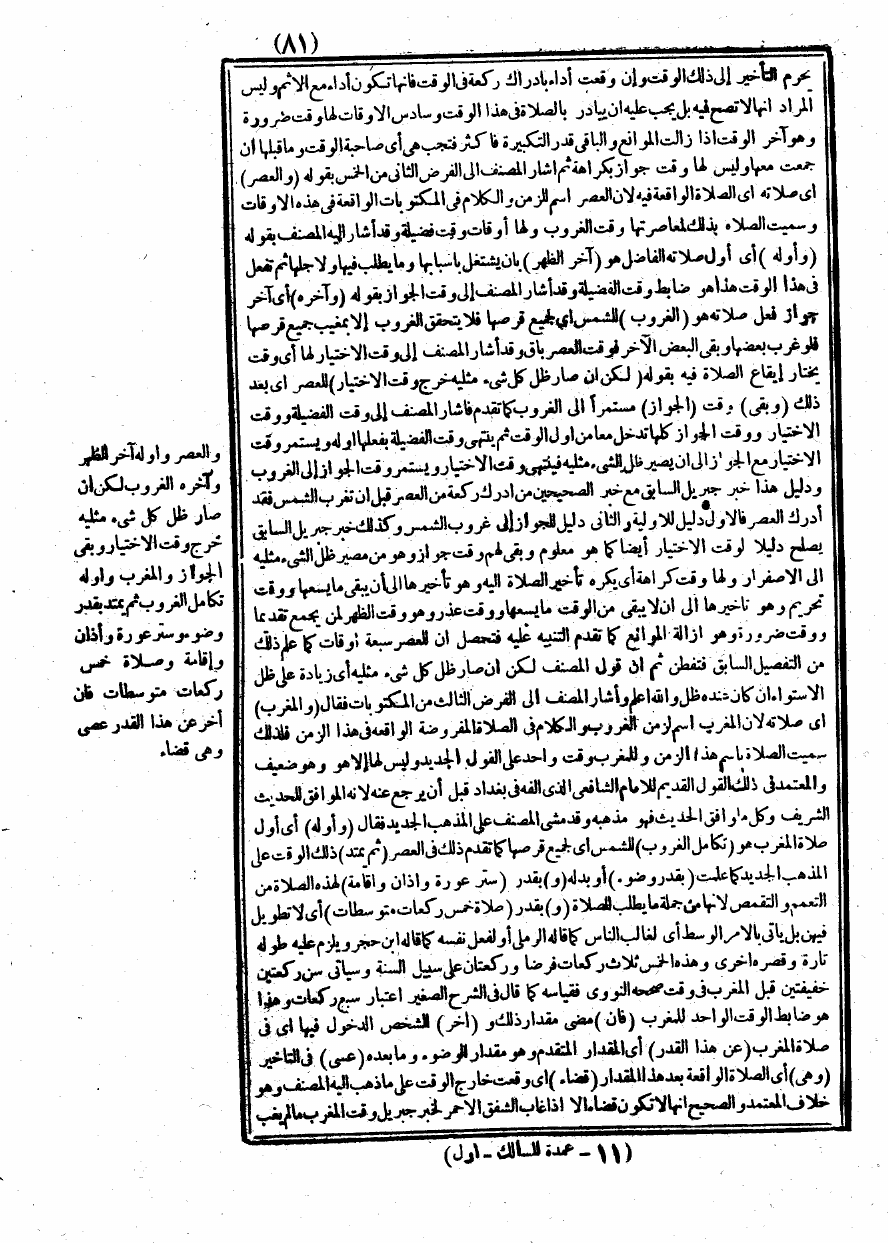 (٨١)
يحرم التأخير إلى ذلك الوقت وإن وقعت أداء بادراك ركعة فى الوقت فانها تكون أداء مع الاثم وليس
المراد انها لا تصح فيه بل يجب عليه ان يبادر بالصلاة فى هذا الوقت وسادس الاوقات لها وقت ضرورة
وهو آخر الوقت اذا زالت الموانع والباقى قدر التكبيرة فاكثر فتجب هى أى صاحبة الوقت وما قبلها ان
جمعت معها وليس لها وقت جواز بكراهة ثم اشار المصنف الى الفرض الثانى من الخمس بقوله (والعصر)
اى صلاته اى الصلاة الواقعة فيه لان العصر اسم للزمن والكلام فى المكتوبات الواقعة فى هذه الاوقات
وسميت الصلاه بذلك لمعاصرتها وقت الغروب ولها أوقات وقت فضيلة وقد أشار اليه المصنف بقوله
(وأوله) أى أول صلاته الفاضل هو (آخر الظهر) بان يشتغل باسبابها وما يطلب فيها ولاجلها ثم تفعل
فى هذا الوقت هذا هو ضابط وقت الفضيلة وقد أشار المصنف إلى وقت الجواز بقوله (وآخره) أى آخر
جواز فعل صلاته هو (الغروب) للشمس اي لجميع قرصها فلا يتحقق الغروب إلا بمغيب جميع قرصها
فلو غرب بعضها وبقى البعض الآخر فوقت العصر باق وقد أشار المصنف إلى وقت الاختيار لها أى وقت
يختار إيقاع الصلاة فيه بقوله (لكن ان صار ظل كل شىء مثليه خرج وقت الاختيار) للعصر اى بعد
ذلك (وبقى) وقت (الجواز) مستمراً الى الغروب كما تقدم فاشار المصنف إلى وقت الفضيلة ووقت
الاختيار ووقت الجواز كلها تدخل معا من اول الوقت ثم ينتهى وقت الفضيلة بفعلها اوله ويستمر وقت
الاختيار مع الجواز الى ان يصير ظل الشىء مثليه فينتهى وقت الاختيار ويستمر وقت الجواز إلى الغروب
ودليل هذا خبر جبريل السابق مع خبر الصحيحين من ادرك ركعة من العصر قبل ان تغرب الشمس فقد
أدرك العصر فالاول دليل للاولية والثانى دليل للجواز إلى غروب الشمس وكذلك خبر جبريل السابق
يصلح دليلا لوقت الاختيار أيضا كما هو معلوم وبقى لهم وقت جواز وهو من مصير ظل الشىء مثليه
الى الاصفرار ولها وقت كراهة أى يكره تأخير الصلاة اليه وهو تأخيرها الى أن يبقى ما يسعها ووقت
تحريم وهو تاخيرها الى ان لا يبقى من الوقت ما يسعها ووقت عذر وهو وقت الظهر لمن يجمع تقديما
ووقت ضرورة وهو ازالة الموانع كما تقدم التنبيه عليه فتحصل ان للعصر سبعة أوقات كما علم ذلك
من التفصيل السابق فتفطن ثم ان قول المصنف لكن ان صار ظل كل شىء مثليه أى زيادة على ظل
الاستواء ان كان عنده ظل والله اعلم وأشار المصنف الى الفرض الثالث من المكتوبات فقال (والمغرب)
اى صلاته لان المغرب اسم لزمن الغروب والكلام فى الصلاة المفروضة الواقعه فى هذا الزمن فلذلك
سميت الصلاة باسم هذا الزمن وللمغرب وقت واحد على القول الجديد وليس لها إلا هو وهو ضعيف
والمعتمد فى ذلك القول القديم للامام الشافعى الذى الفه فى بغداد قبل أن يرجع عنه لانه الموافق للحديث
الشريف وكل ما وافق الحديث فهو مذهبه وقد مشى المصنف على المذهب الجديد فقال (وأوله) أى أول
صلاة المغرب هو (تكامل الغروب) للشمس اى لجميع قرصها كما تقدم ذلك فى العصر (ثم يمتد) ذلك الوقت على
المذهب الجديد كما علمت (بقدر وضوء) أو بدله (و) بقدر (ستر عورة واذان واقامة) لهذه الصلاة من
التعمم والتقمص لانها من جملة ما يطلب للصلاة (و) بقدر (صلاة خمس ركعات متوسطات) أى لا تطويل
فيهن بل ياتى بالامر الوسط أى لغالب الناس كما قاله الرملى أو لفعل نفسه كما قاله ابن حجر ويلزم عليه طوله
تارة وقصره اخرى وهذه الخمس ثلاث ركعات فرضا وركعتان على سبيل السنة وسياتى سن ركعتين
خفيفتين قبل المغرب فى وقت صححه النووى فقياسه كما قال فى الشرح الصغير اعتبار سبع ركعات وهذا
هو ضابط الوقت الواحد للمغرب (فان) مضى مقدار ذلك و (أخر) الشخص الدخول فيها اى فى
صلاة المغرب (عن هذا القدر) أى المقدار المتقدم وهو مقدار الوضوء وما بعده (عصى) فى التاخير
(وهى) أى الصلاة الواقعة بعد هذا المقدار (قضاء) اى وقعت خارج الوقت على ما ذهب اليه المصنف وهو
خلاف المعتمد والصحيح انها لا تكون قضاء الا اذا غاب الشفق الاحمر لخبر جبريل وقت المغرب ما لم يغب
والعصر واوله آخر الظهر
وآخره الغروب لكن ان
صار ظل كل شىء مثليه
خرج وقت الاختيار وبقى
الجواز والمغرب واوله
تكامل الغروب ثم يمتد بقدر
وضوء وستر عورة وأذان
وإقامة وصلاة خمس
ركعات متوسطات فان
أخر عن هذا القدر عصى
وهى قضاء
(١١ - عمدة السالك - اول)